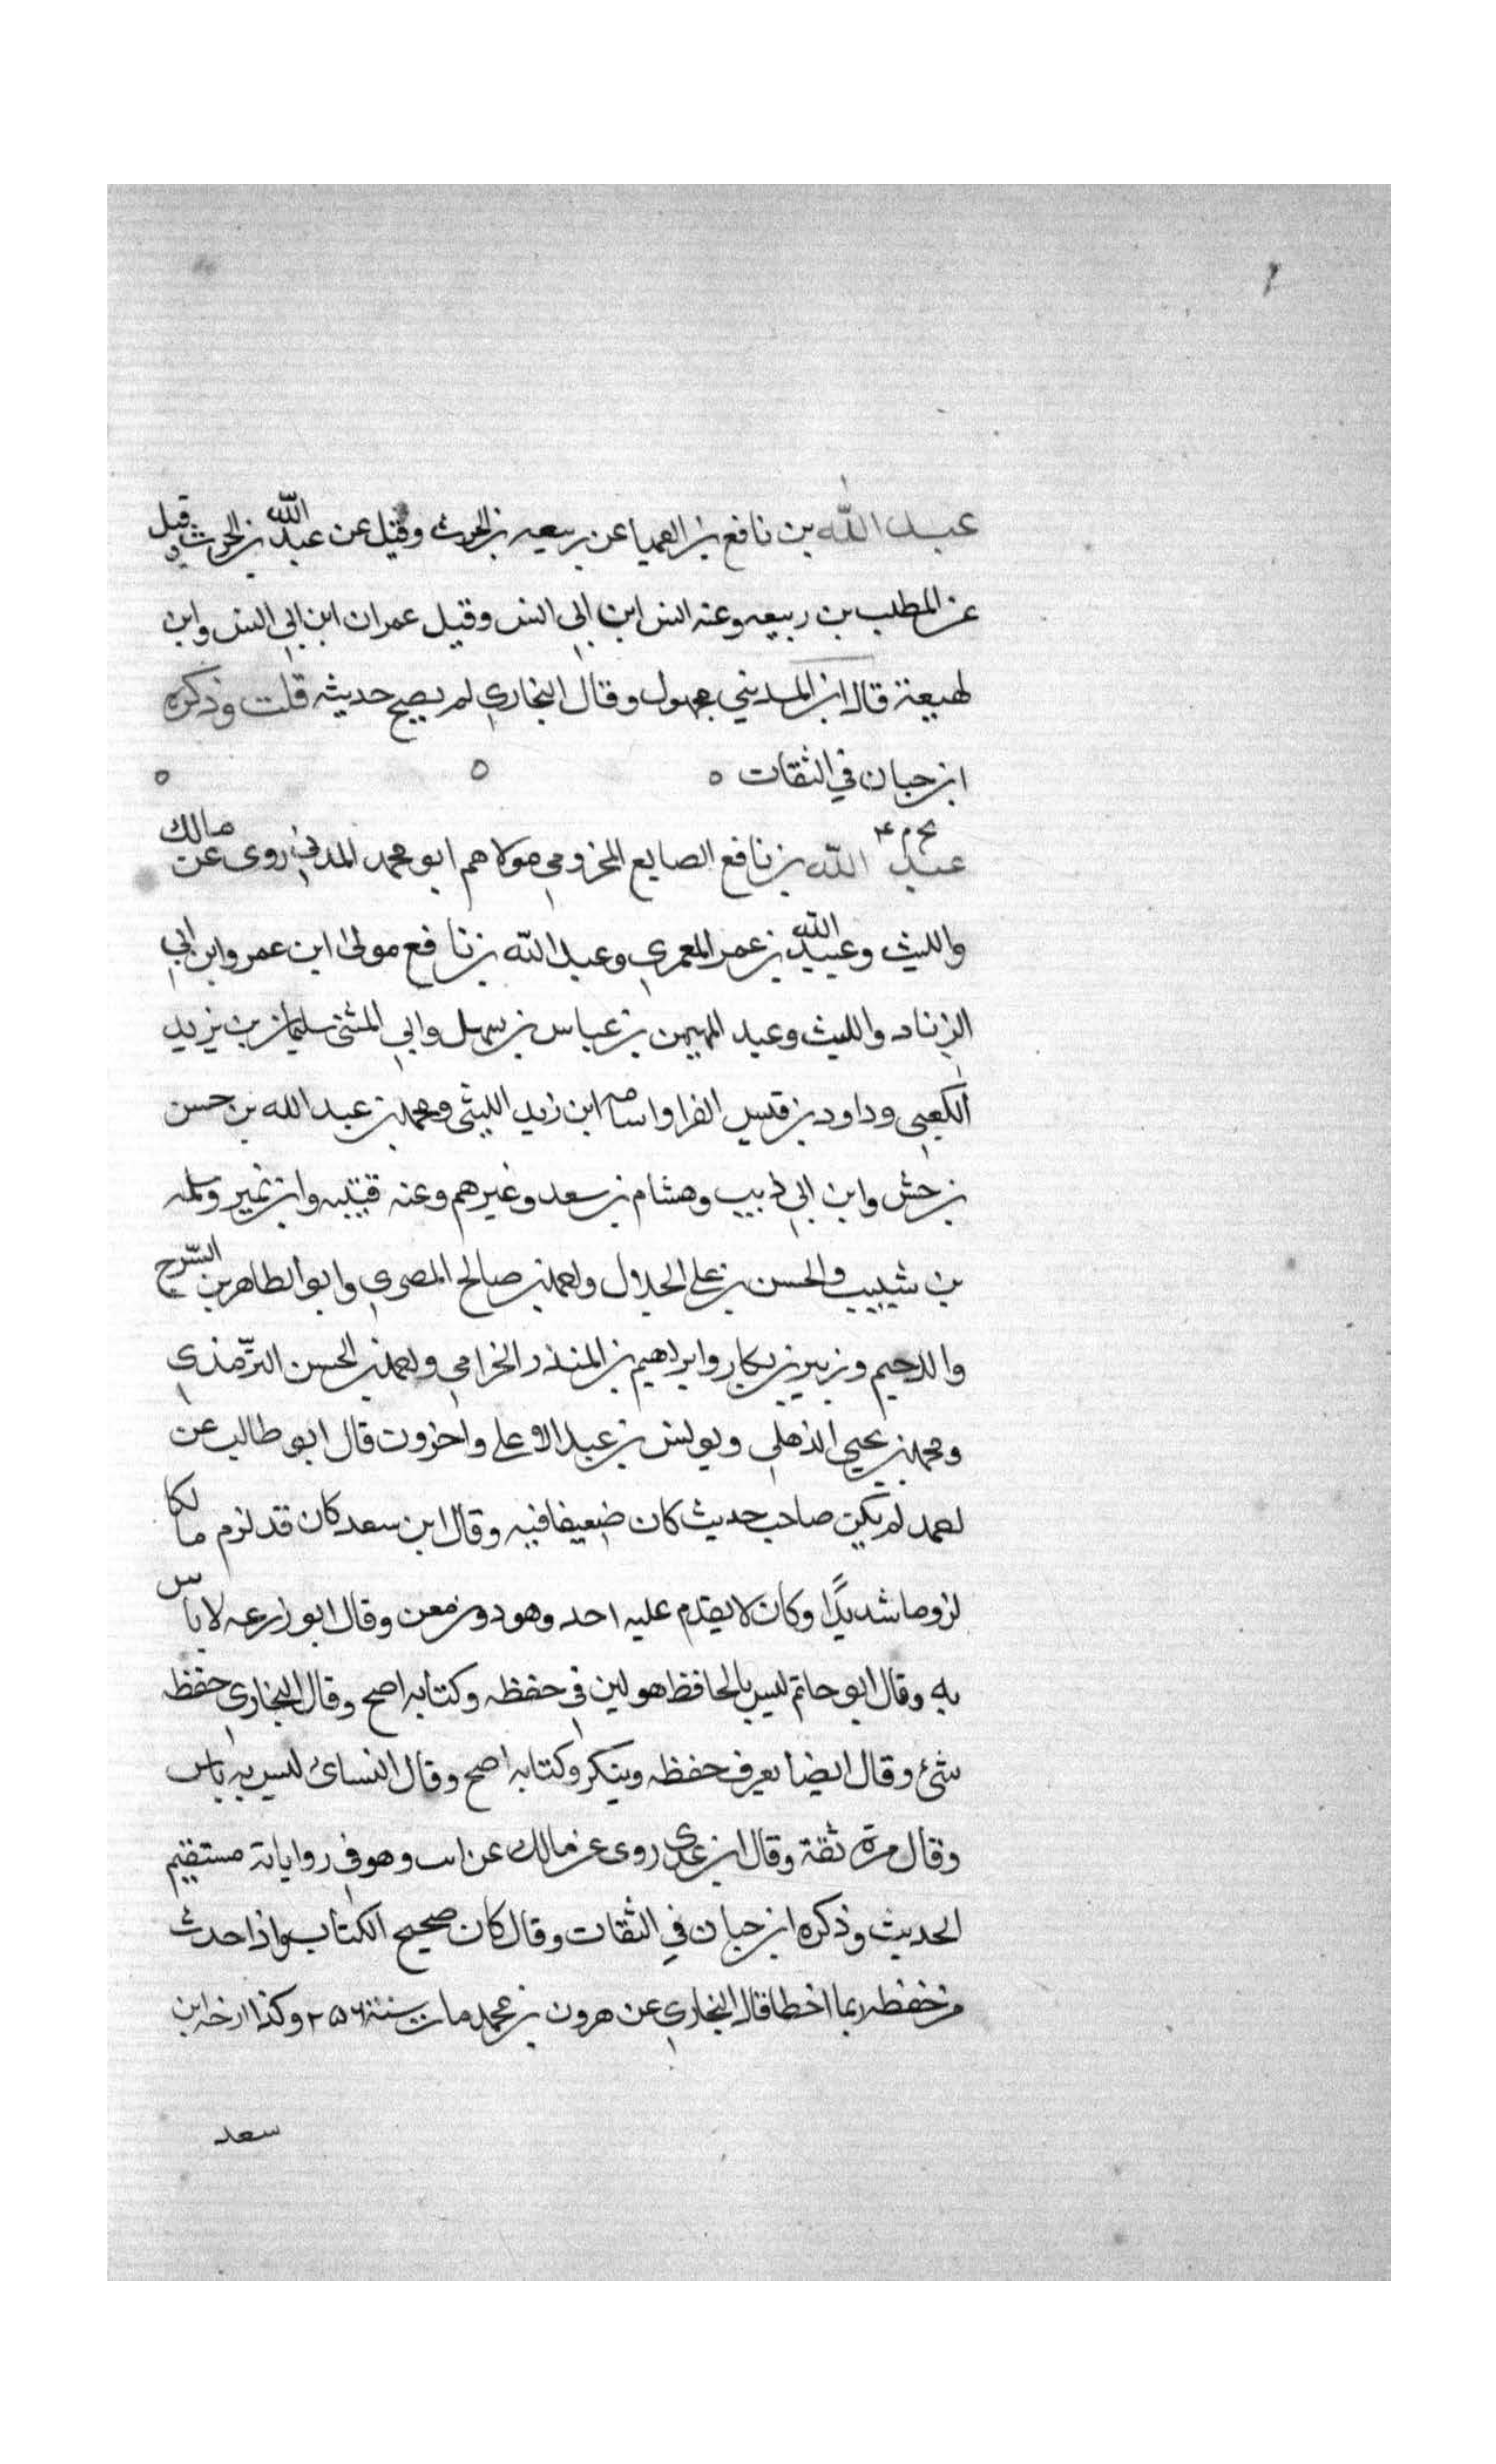 عبد الله بن نافع بن العميا عن ربيعه بن الحرث وقيل عن عبد الله بن الحرث وقيل
عن المطلب بن ربيعه وعنه انس ابن ابي انس وقيل عمران ابن ابي انس وابن
لهيعة قال ابن المديني مجهول وقال البخاري لم يصح حديثه قلت وذكره
ابن حبان في الثقات ٥ ٥ ٥
بخ م ٤
عبد الله بن نافع الصايع المخزومي مولاهم ابو محمد المدني روى عن مالك
والليث وعبيد الله بن عمر المعمري وعبد الله بن نافع مولى ابن عمر وابن ابي
الزناد والليث وعبد المهيمن بن عباس بن سهل وابي المثنى سليمان بن يزيد
الكعبي وداود بن قيس الفرا واسامه ابن زيد الليثي ومحمد بن عبد الله بن حسن
بن حش وابن ابي ذييب وهشام بن سعد وغيرهم وعنه قتيبه وابن نمير وسلمه
بن شبيب والحسن بن علي الحلال واحمد بن صالح المصري وابو الطاهر بن السرح
والدحيم وزبير بن بكار وابراهيم بن المنذر الخزامي واحمد بن الحسن الترمذي
ومحمد بن يحيى الذهلي ويونس بن عبد الاعلى واخرون قال ابو طالب عن
احمد لم يكن صاحب حديث كان ضعيفا فيه وقال ابن سعد كان قد لزم مالكا
لزوما شديدًا وكان لا يقدم عليه احد وهو دون معن وقال ابو زرعه لا باس
به وقال ابو حاتم ليس بالحافظ هو لين في حفظه وكتابه اصح وقال البخاري حفظه
شئ وقال ايضا يعرف حفظه وينكر وكتابه اصح وقال النسائ ليس به باس
وقال مرة ثقة وقال ابن عدي روى عن مالك غرائب وهو في رواياته مستقيم
الحديث وذكره ابن حبان في الثقات وقال كان صحيح الكتاب واذا حدث
من حفظه ربما اخطا قال البخاري عن هرون بن محمد مات سنة ٢٥٦ وكذا ارخه ابن
سعد